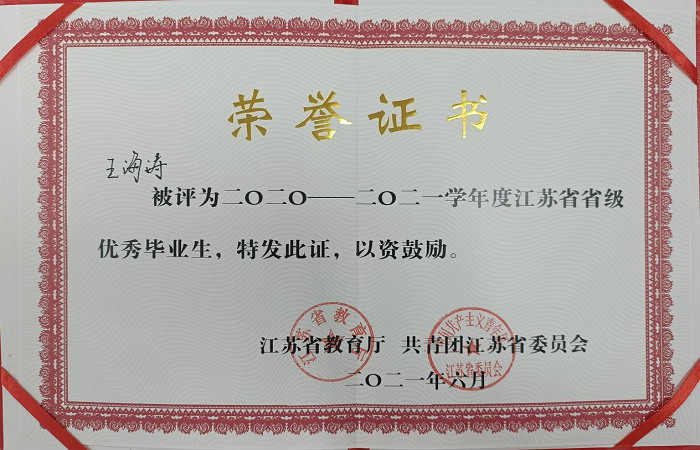 荣誉证书
王海涛
被评为二〇二〇——二〇二一学年度江苏省省级
优秀毕业生，特发此证，以资鼓励。
江苏省教育厅 共青团江苏省委员会
二〇二一年六月
江苏省教育厅
中国共产主义青年团
江苏省委员会